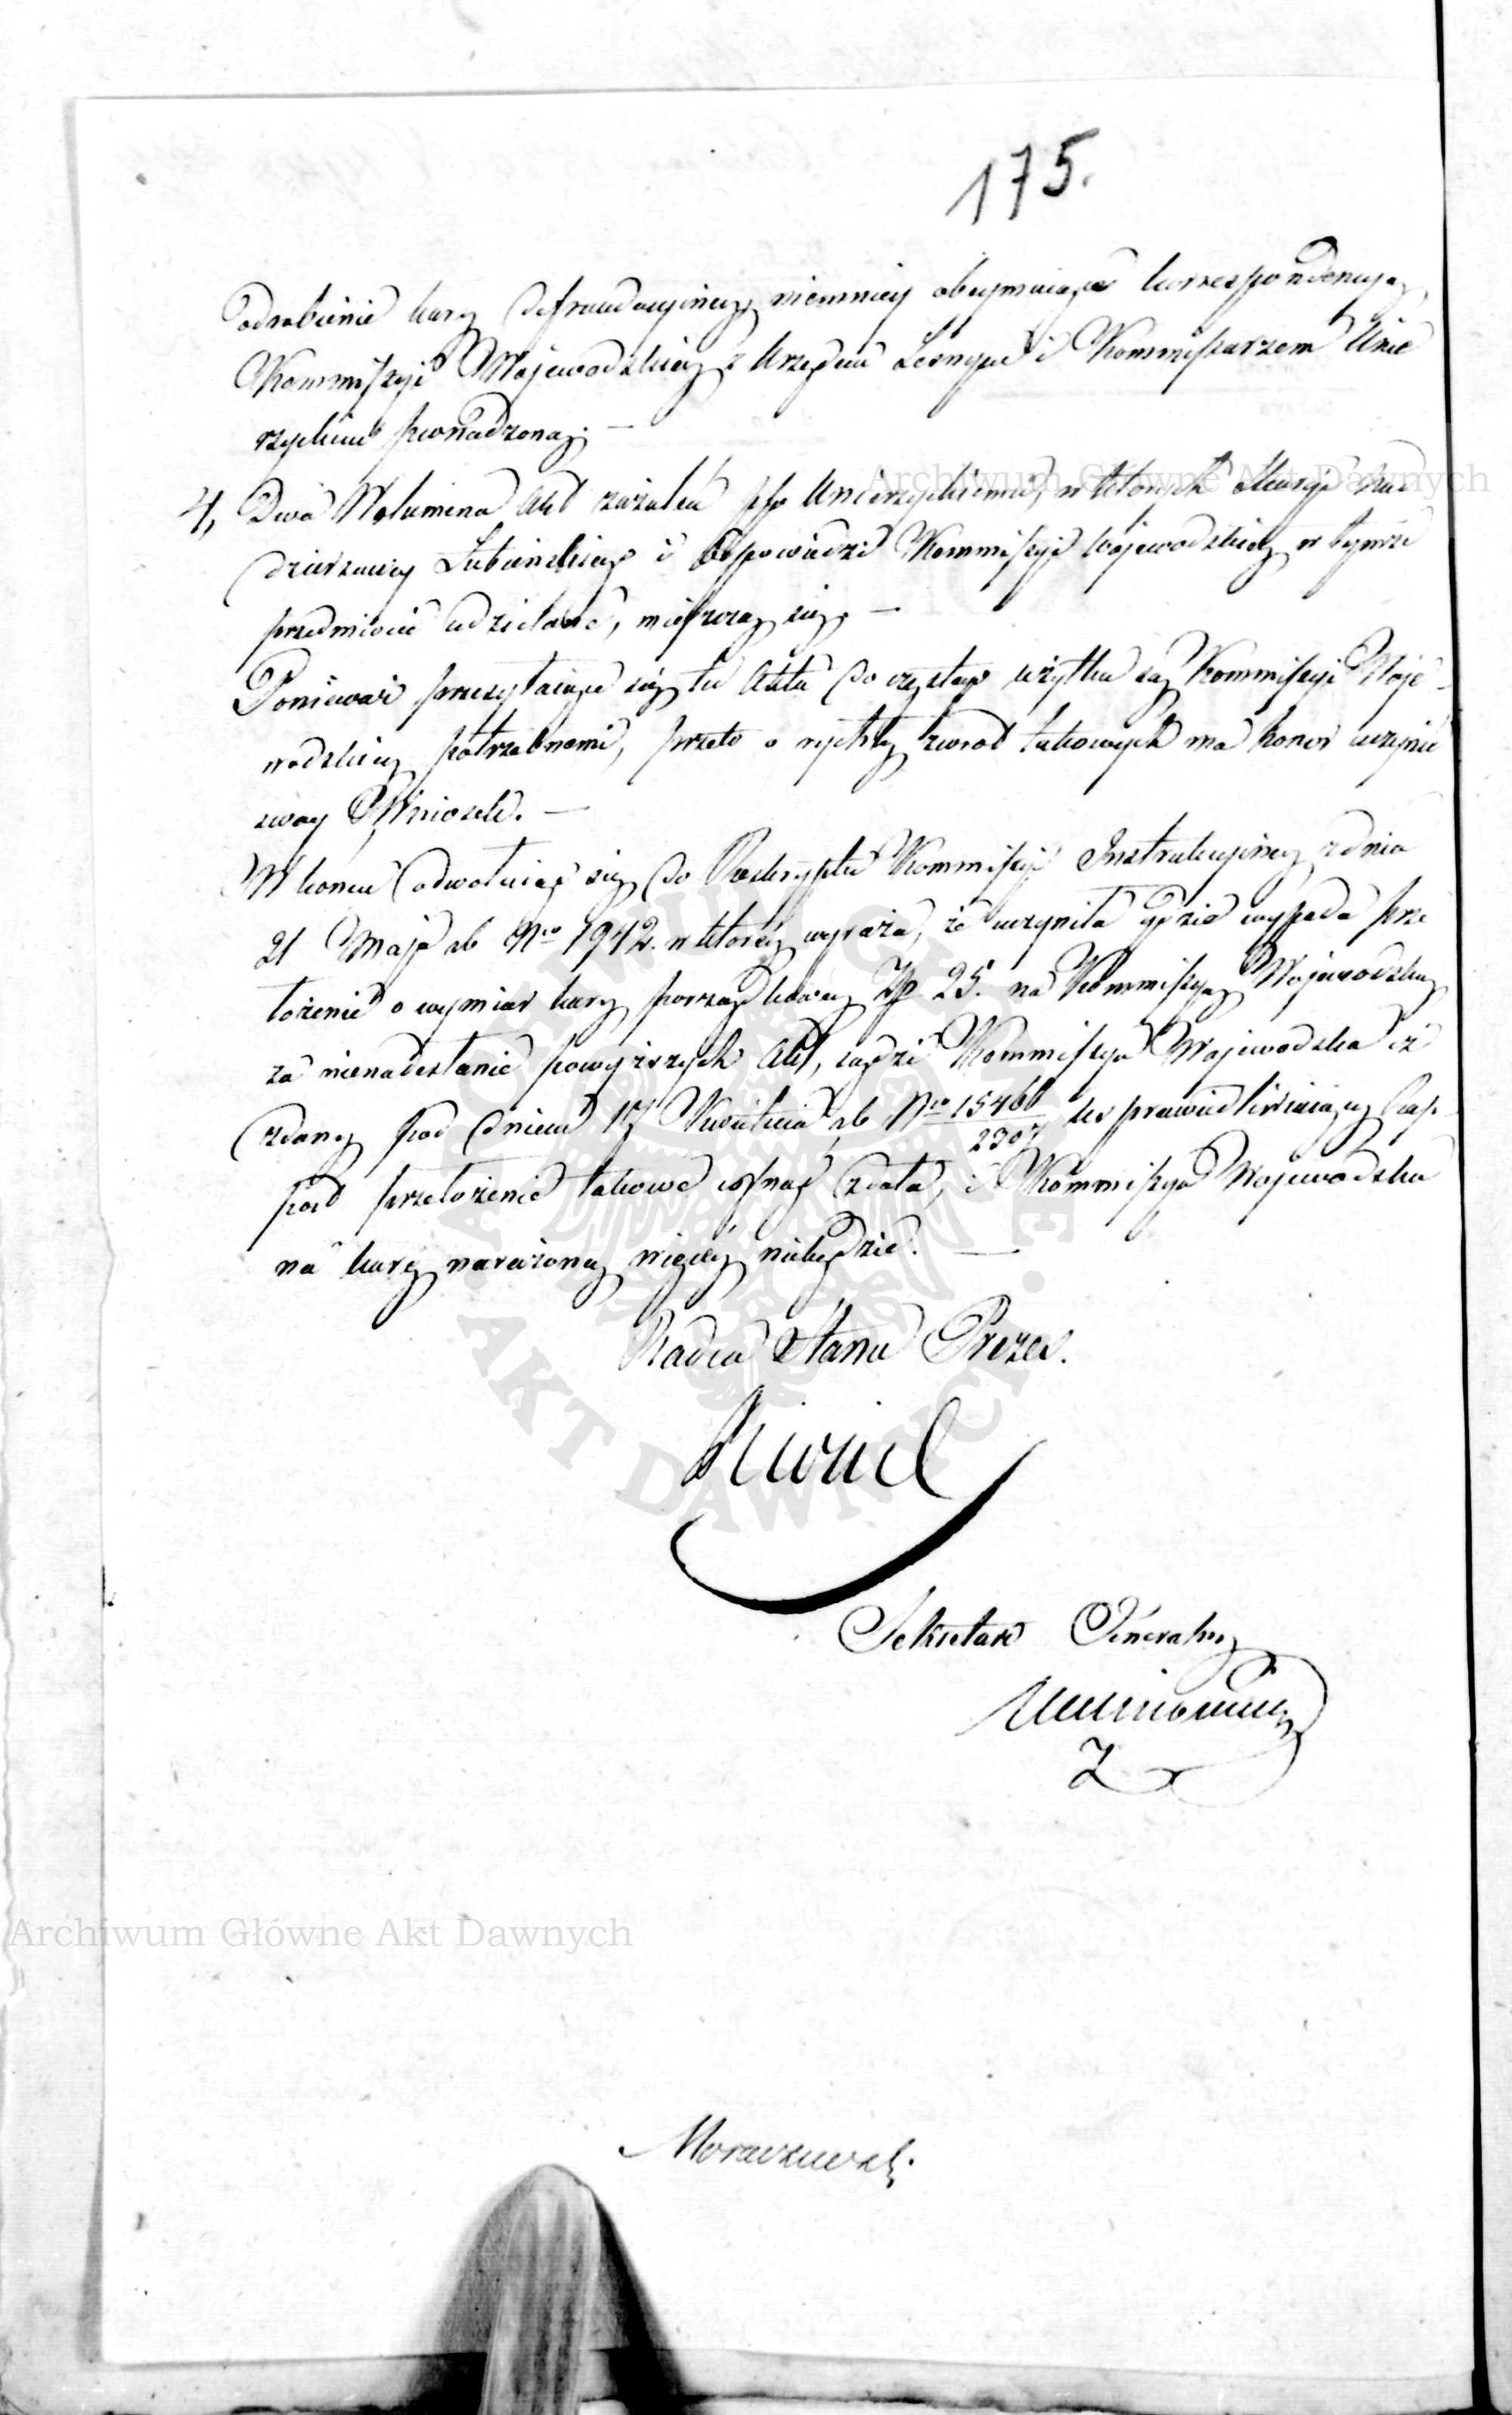 175.
odrobienie kary defraudacyiney, niemniey obeymuiące korrespondencyą
Kommissyi Woiewodzkiey z Urzędem Leśnym i Kommissarzem Unie
rzyskim prowadzoną; —
4, Dwa Volumina Akt zażaleń p/ko Unierzyskiemu, w których Skargi Nad
dzierzawcy Lubieńskiego i Odpowiedzi Kommissyi Wojewodzkiey w tymże
przedmiocie udzielone, mieszczą się. —
Ponieważ przesyłaiące się tu Akta do częstego użytku są Kommissyi Woje-
wodzkiey potrzebnemi, przeto o rychły zwrot takowych ma honor uczynić
swoy Wniosek. —
W końcu odwołuiąc się do Reskryptu Kommissyi Instrukcyiney z dnia
21 Maja rb Nro 1942. w którey wyraża, że uczyniła gdzie wypada prze
łożenie o wymiar kary porządkowey Zp 25. na Kommissyą Woiewodzką
za nienadesłanie powyższych Akt, sądzi Kommissya Woiewodzka iż
zdany pod dniem 17 Kwietnia rb Nro 15466/2307 usprawiedliwiaiący Rap
port przełożenie takowe cofnąć zdoła, i Kommissya Wojewodzka
na karę narażoną więcey niebędzie. —
Radca Stanu Prezes.
Sekretarz Generalny
Archiwum Główne Akt Dawnych
Archiwum Główne Akt Dawnych